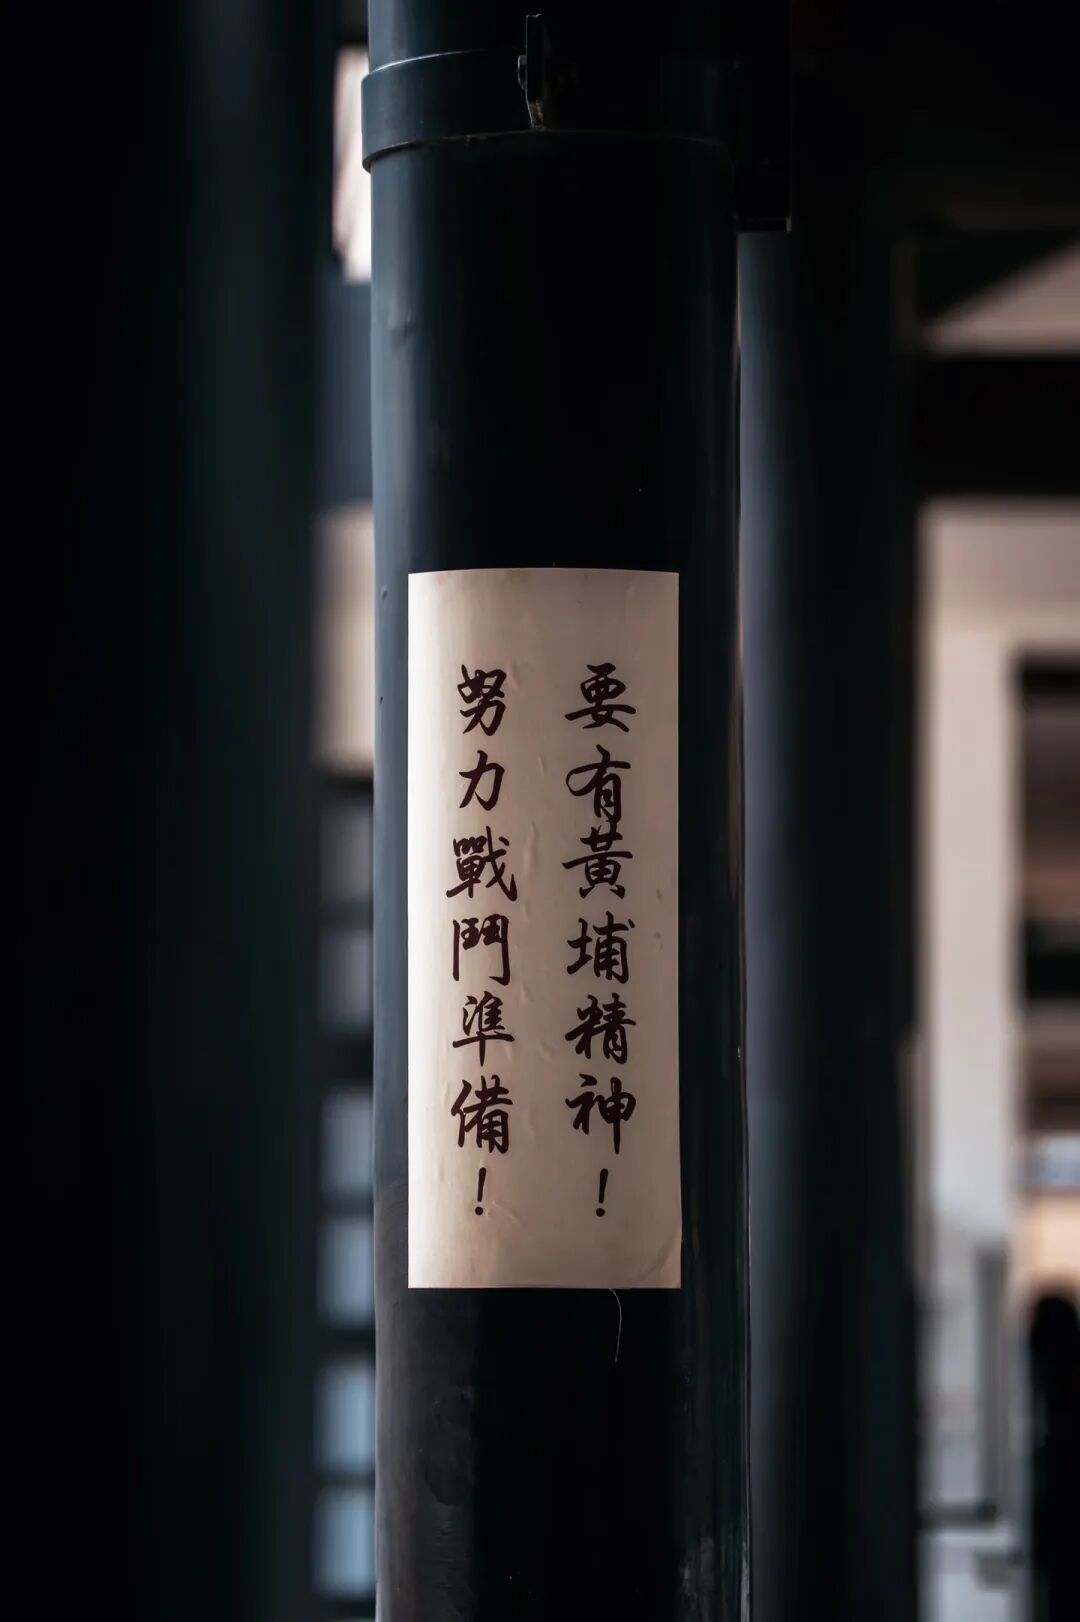 要有黃埔精神！
努力戰鬥準備！